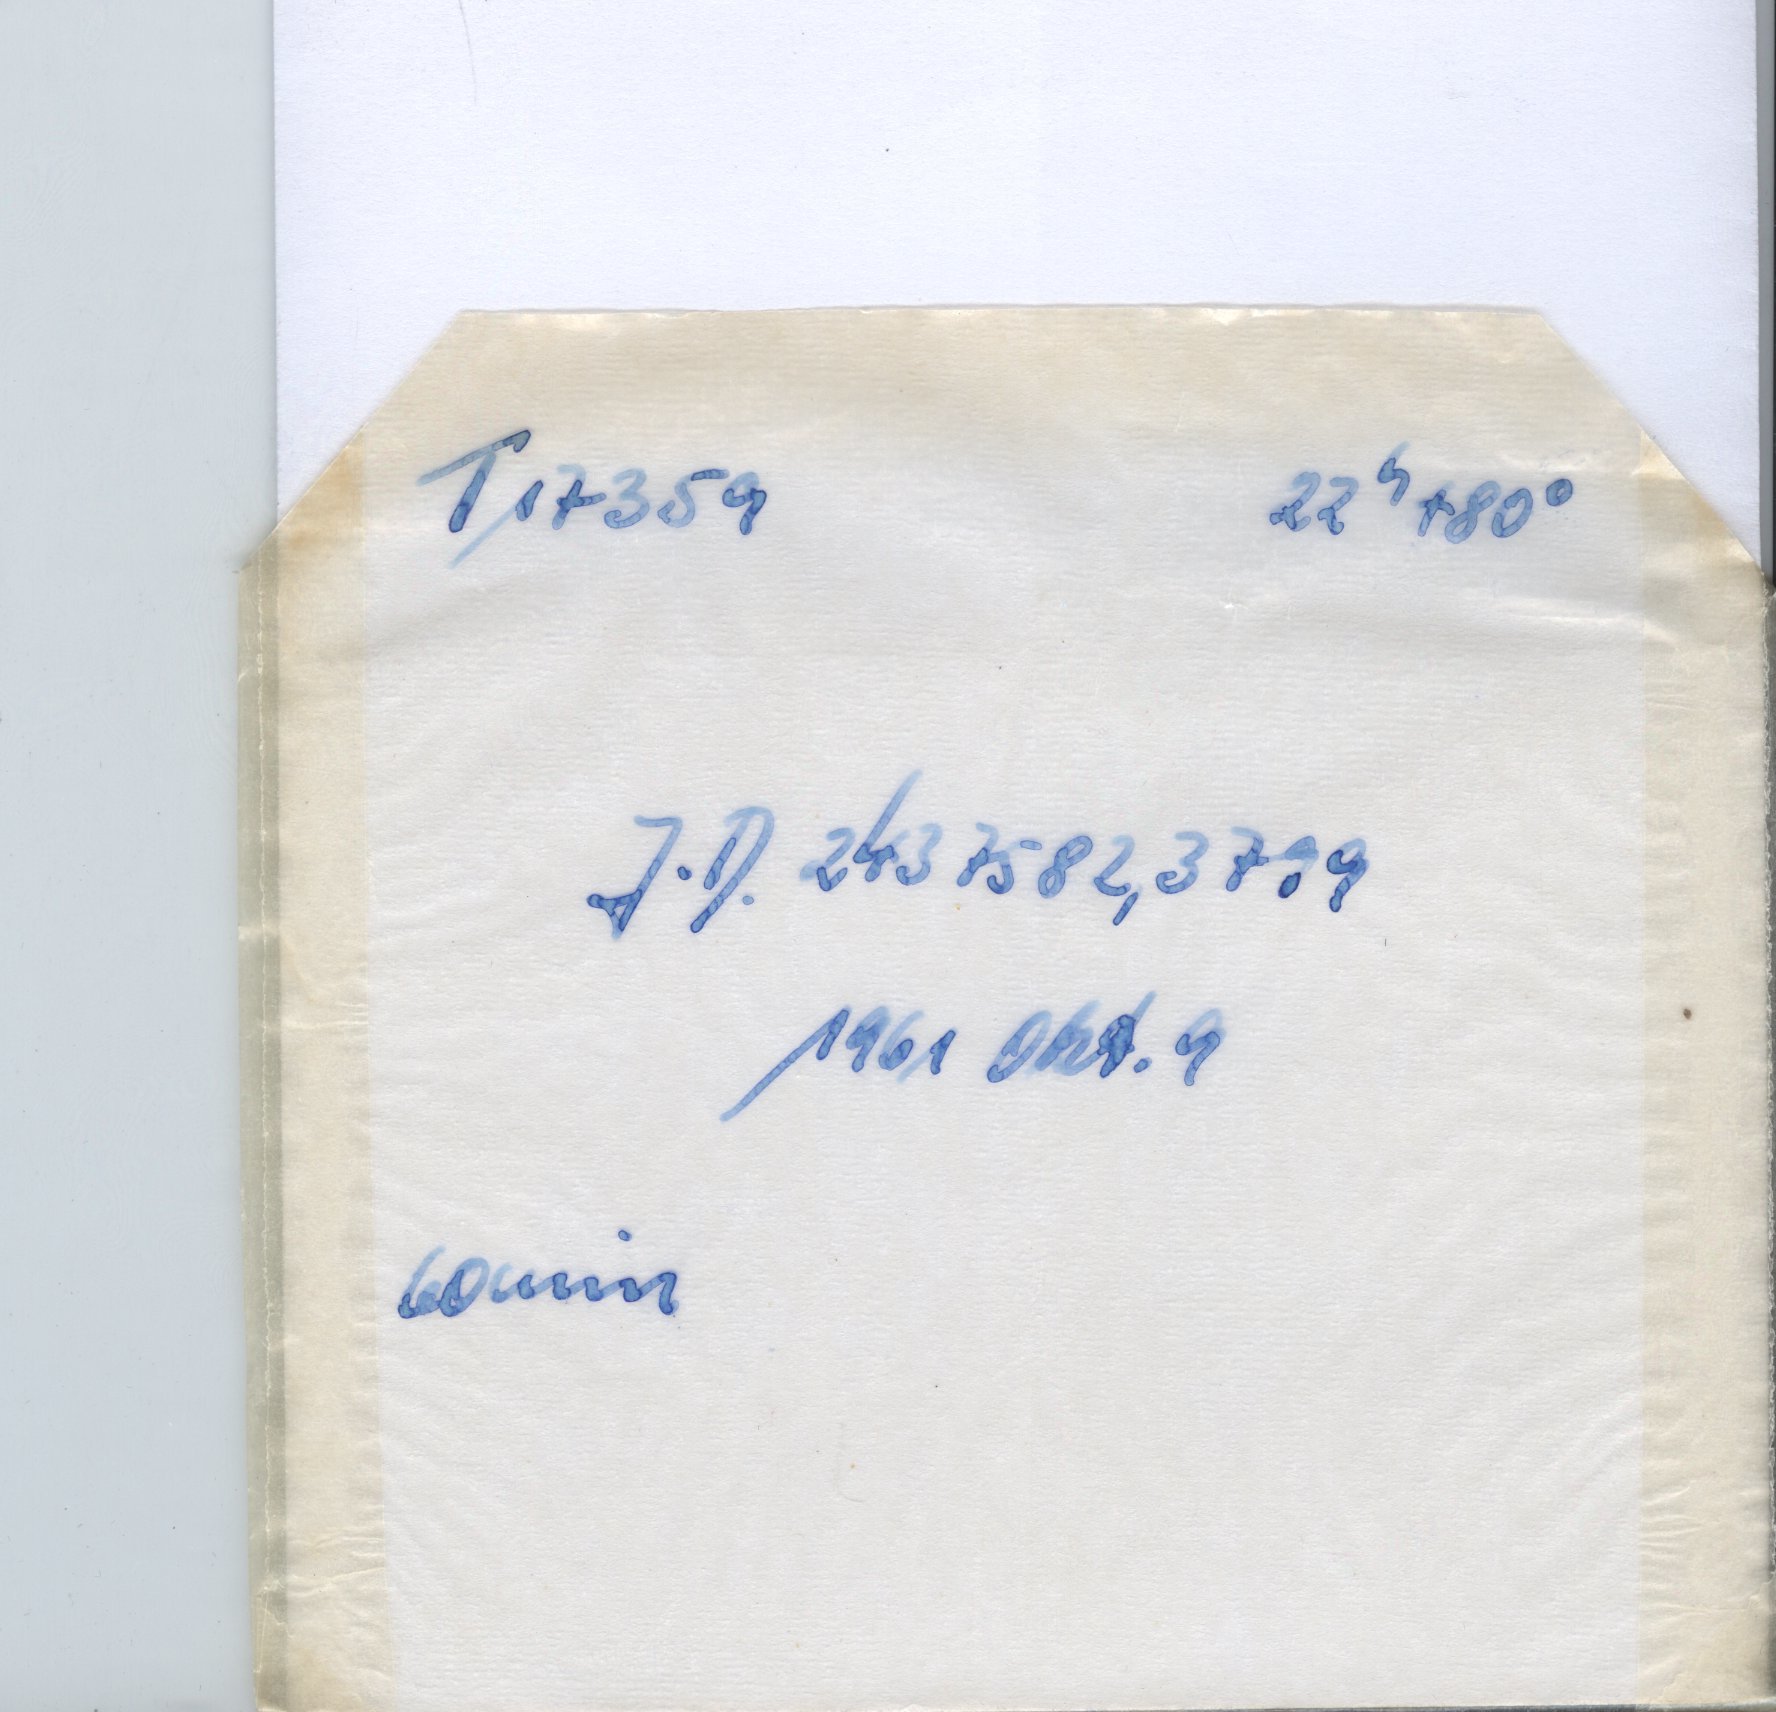 T17359 22ʰ+80°
J.D. 2437582,3799
1961 Okt. 9
60min